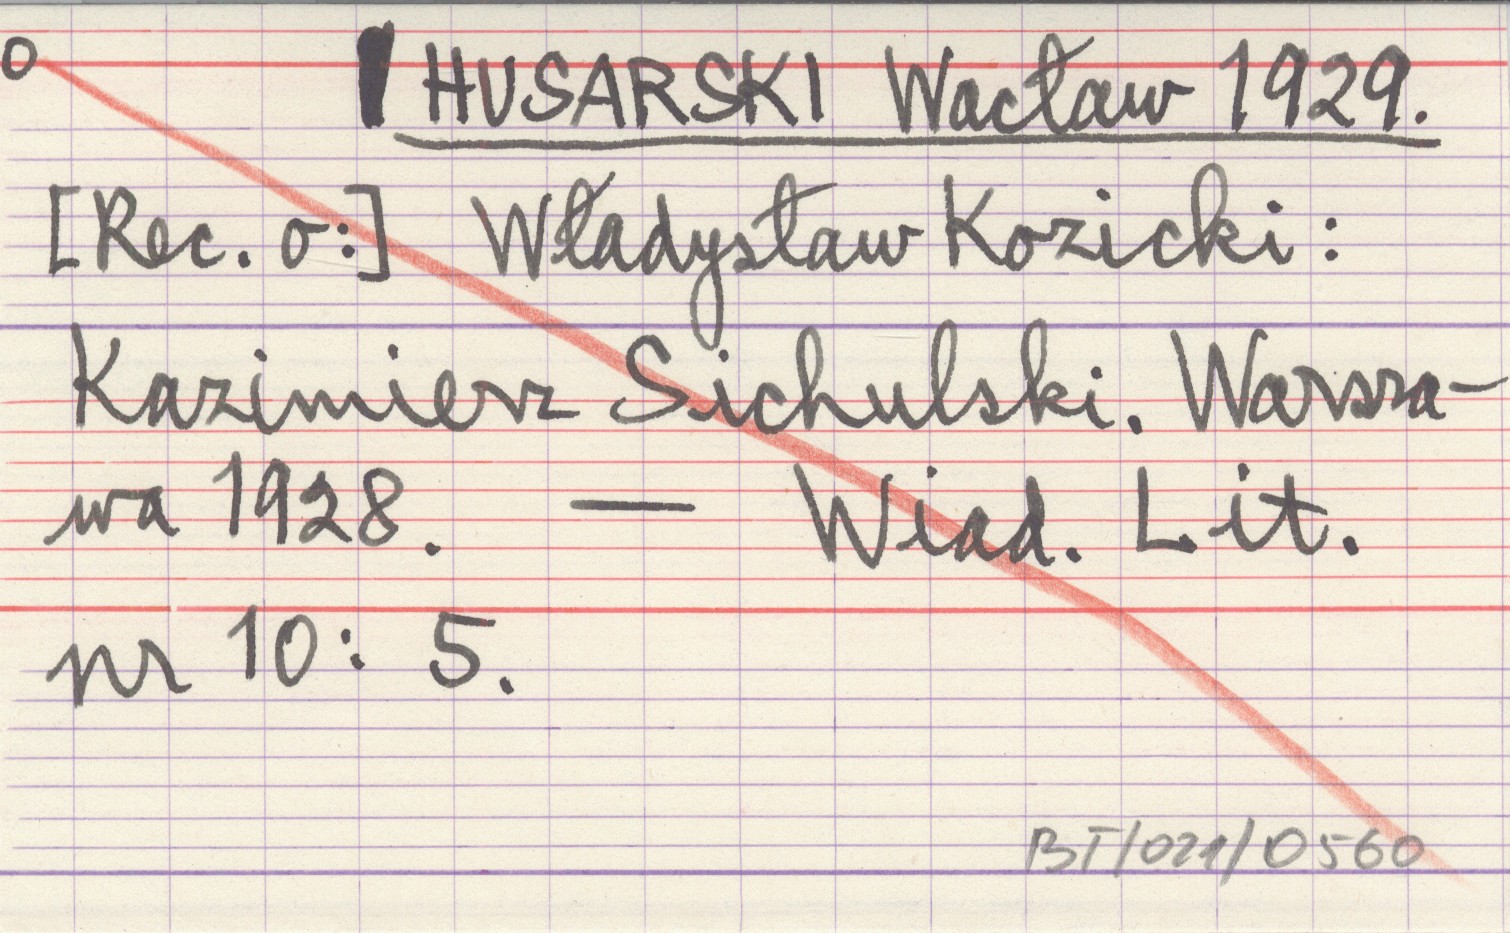 O HUSARSKI Wacław 1929.
[Rec. o:] Władysław Kozicki:
Kazimierz Sichulski. Warsza-
wa 1928. — Wiad. Lit.
nr 10: 5.
BT/021/0560